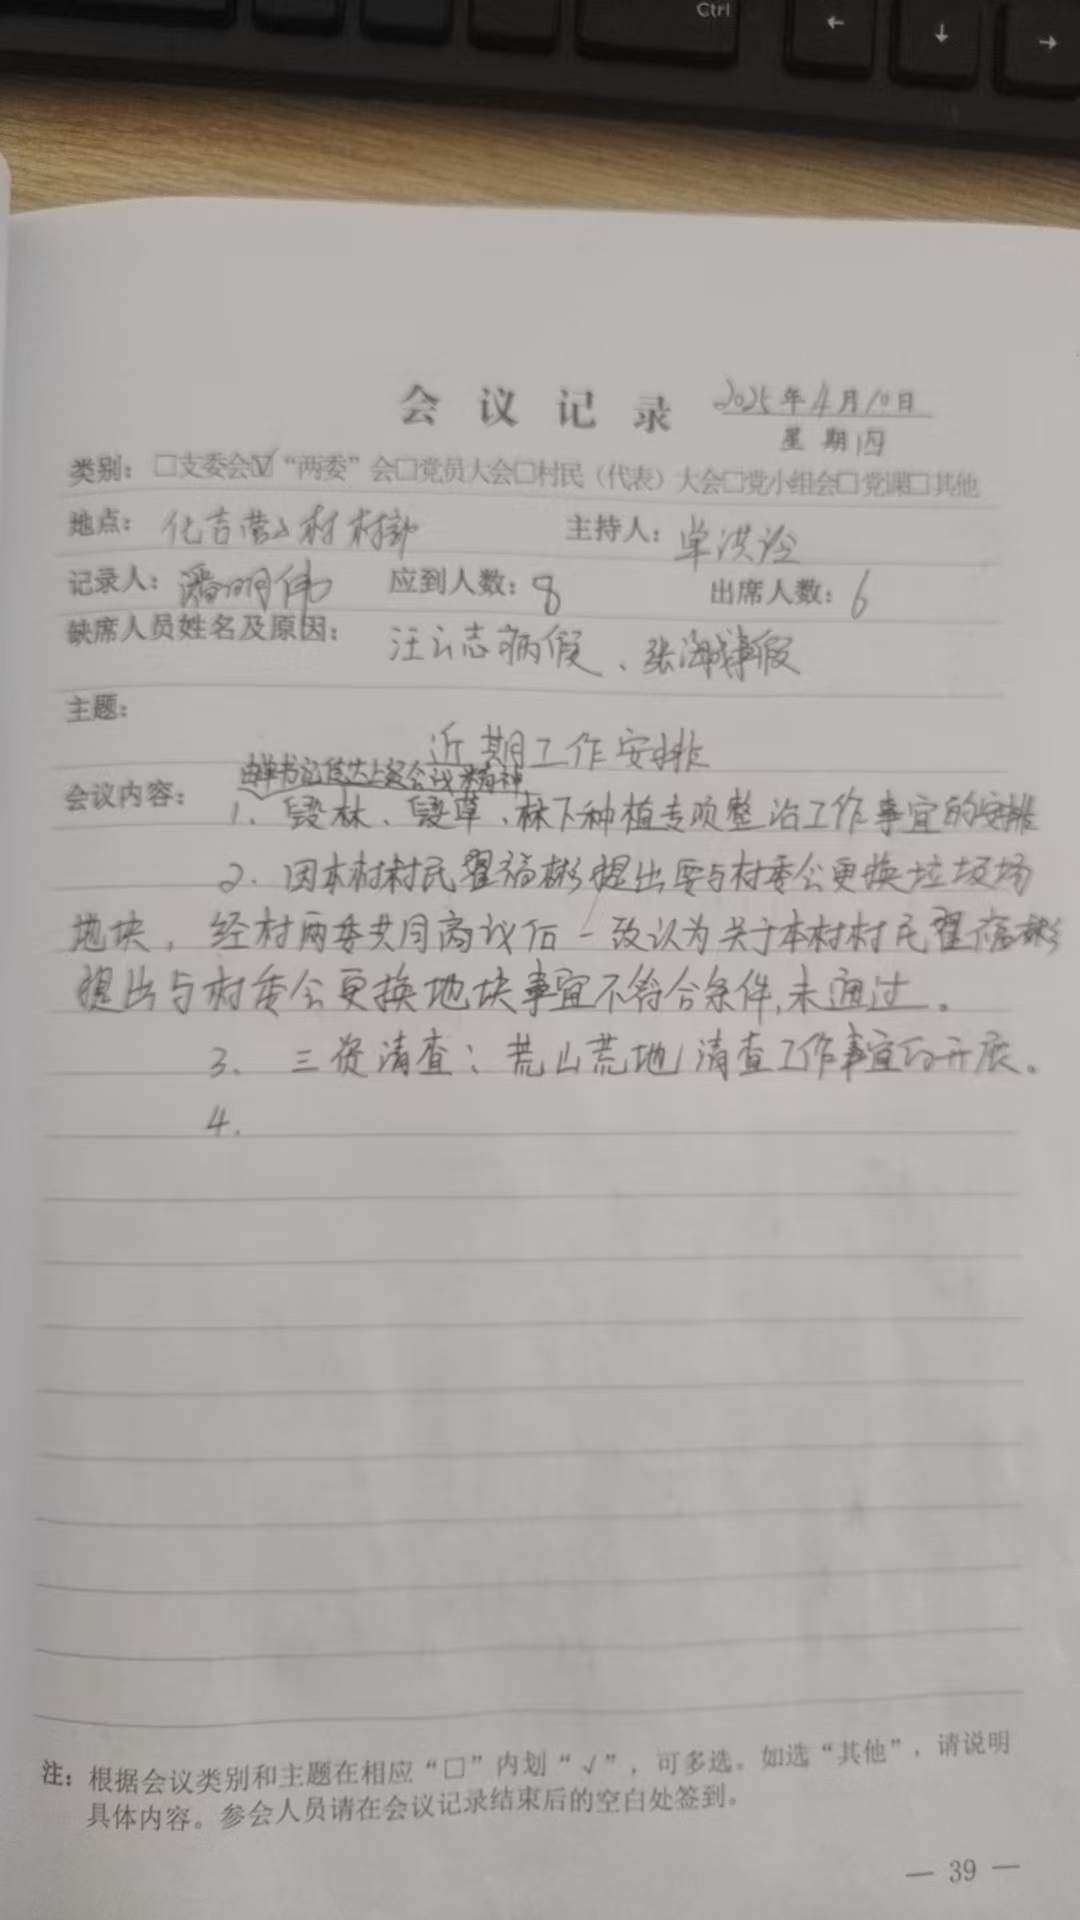 Ctrl
← ↓ →
会议记录 2025年4月10日
星期四
类别：□支委会☑“两委”会□党员大会□村民（代表）大会□党小组会□党课□其他
地点：化吉营子村村部 主持人：单洪
记录人：潘明伟 应到人数：8 出席人数：6
缺席人员姓名及原因：汪云志病假、张海成事假
主题：
近期工作安排
由单书记传达上级会议精神
会议内容：1、毁林、毁草、林下种植专项整治工作事宜的安排
2. 因本村村民翟福彬提出要与村委会更换垃圾场
地块，经村两委共同商议后一致认为关于本村村民翟福彬
提出与村委会更换地块事宜不符合条件,未通过。
3. 三资清查：荒山荒地清查工作事宜的开展。
4.
注：根据会议类别和主题在相应“□”内划“√”，可多选。如选“其他”，请说明
具体内容。参会人员请在会议记录结束后的空白处签到。
— 39 —